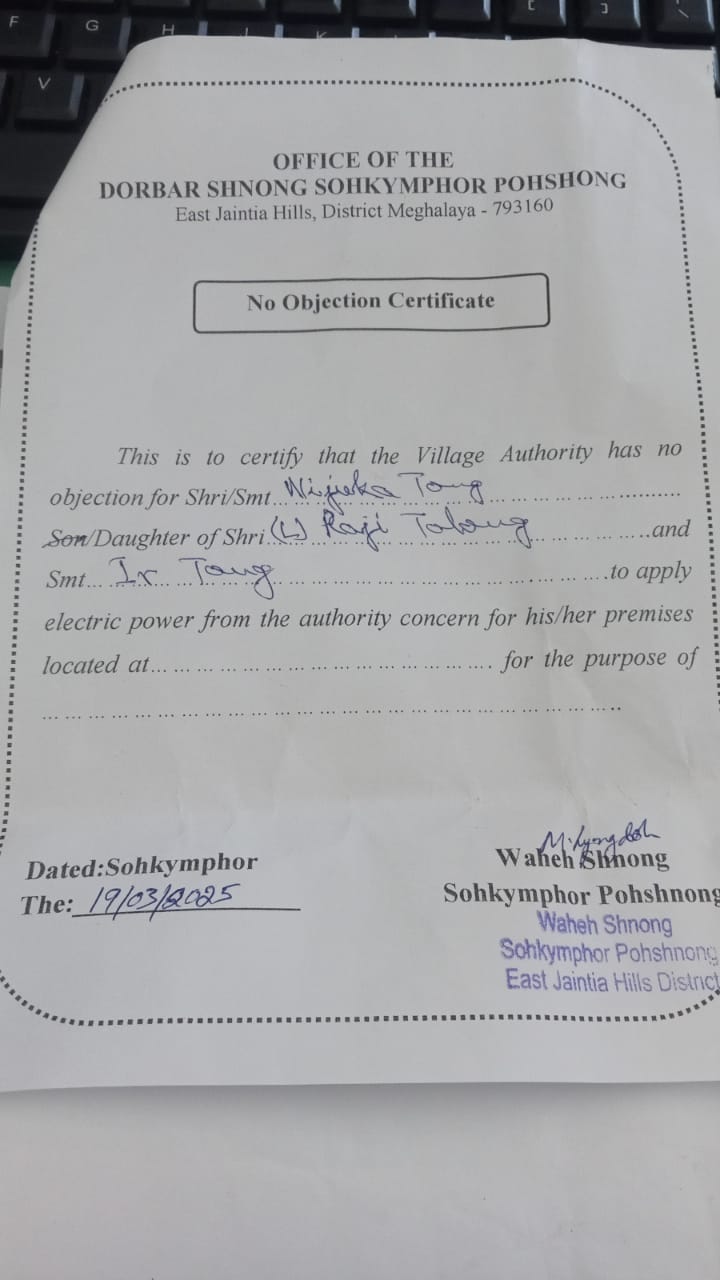 OFFICE OF THE
DORBAR SHNONG SOHKYMPHOR POHSHONG
East Jaintia Hills, District Meghalaya - 793160
No Objection Certificate
This is to certify that the Village Authority has no
objection for Shri/Smt... Wijuka Tong ... ... ... ... ..........
Son/Daughter of Shri (L) Raji Tabong ... ... ... .....and
Smt... Ir Tong ... ... ... ... ... ... ... ... ... ... ... ....to apply
electric power from the authority concern for his/her premises
located at... ... ... ... ... ... ... ... ... ... ... ... ... .... for the purpose of
... ... ... ... ... ... ... ... ... ... ... ... ... ... ... ... ... ... ... .....
Dated:Sohkymphor
The: 19/03/2025
Waheh Shnong
Sohkymphor Pohshnong
Waheh Shnong
Sohkymphor Pohshnong
East Jaintia Hills District
F
G
H
K
V
[
]
\